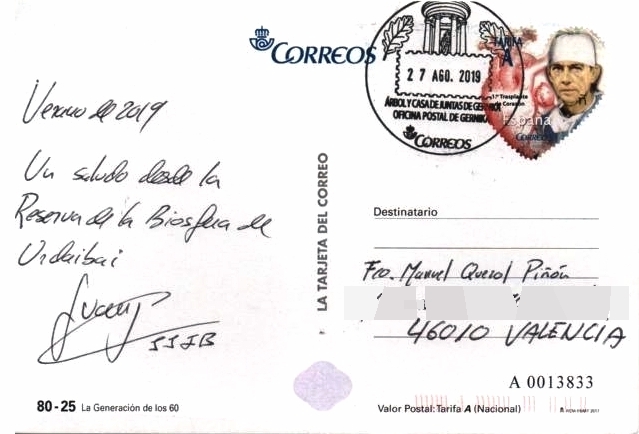 CORREOS
TARIFA
A
27 AGO. 2019
1er Trasplante
de Corazón
ÁRBOL Y CASA DE JUNTAS DE GERNIKA
OFICINA POSTAL DE GERNIKA
España
CORREOS
CORREOS
Verano de 2019
Un saludo desde la
Reserva de la Biosfera de
Urdaibai
LA TARJETA DEL CORREO
Destinatario
Fco. Manuel Querol Piñón
46010 VALENCIA
A 0013833
80-25 La Generación de los 60
Valor Postal: Tarifa A (Nacional)